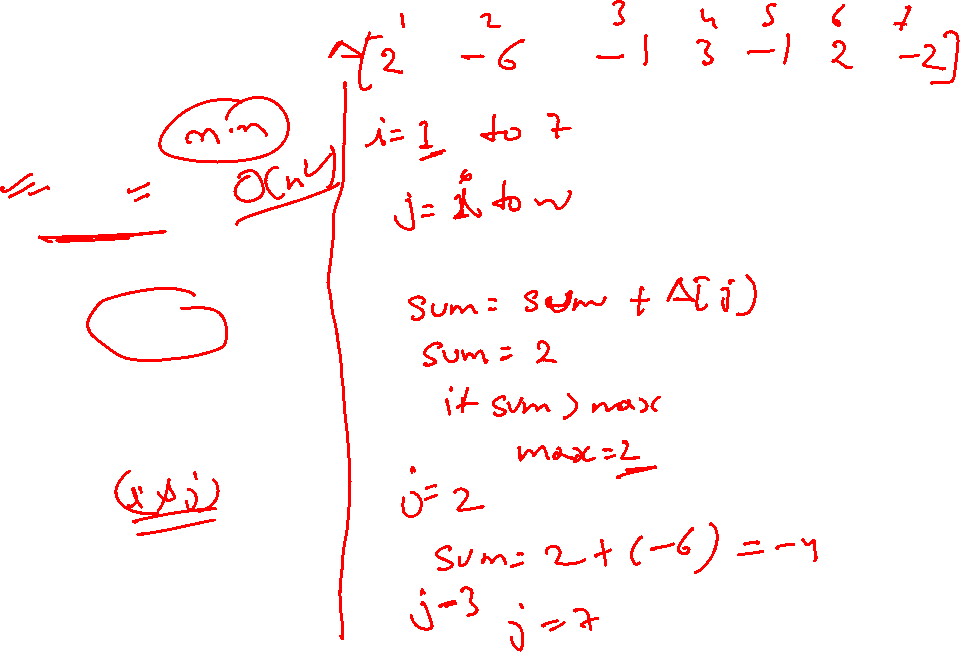 1 2 3 4 5 6 7
A[2 -6 -1 3 -1 2 -2]
n·n
O(n²)
i=1 to 7
j= i to n
sum= sum + A[j)
sum= 2
if sum > max
max=2
j=2
sum= 2+(-6) = -4
j-3 j=7